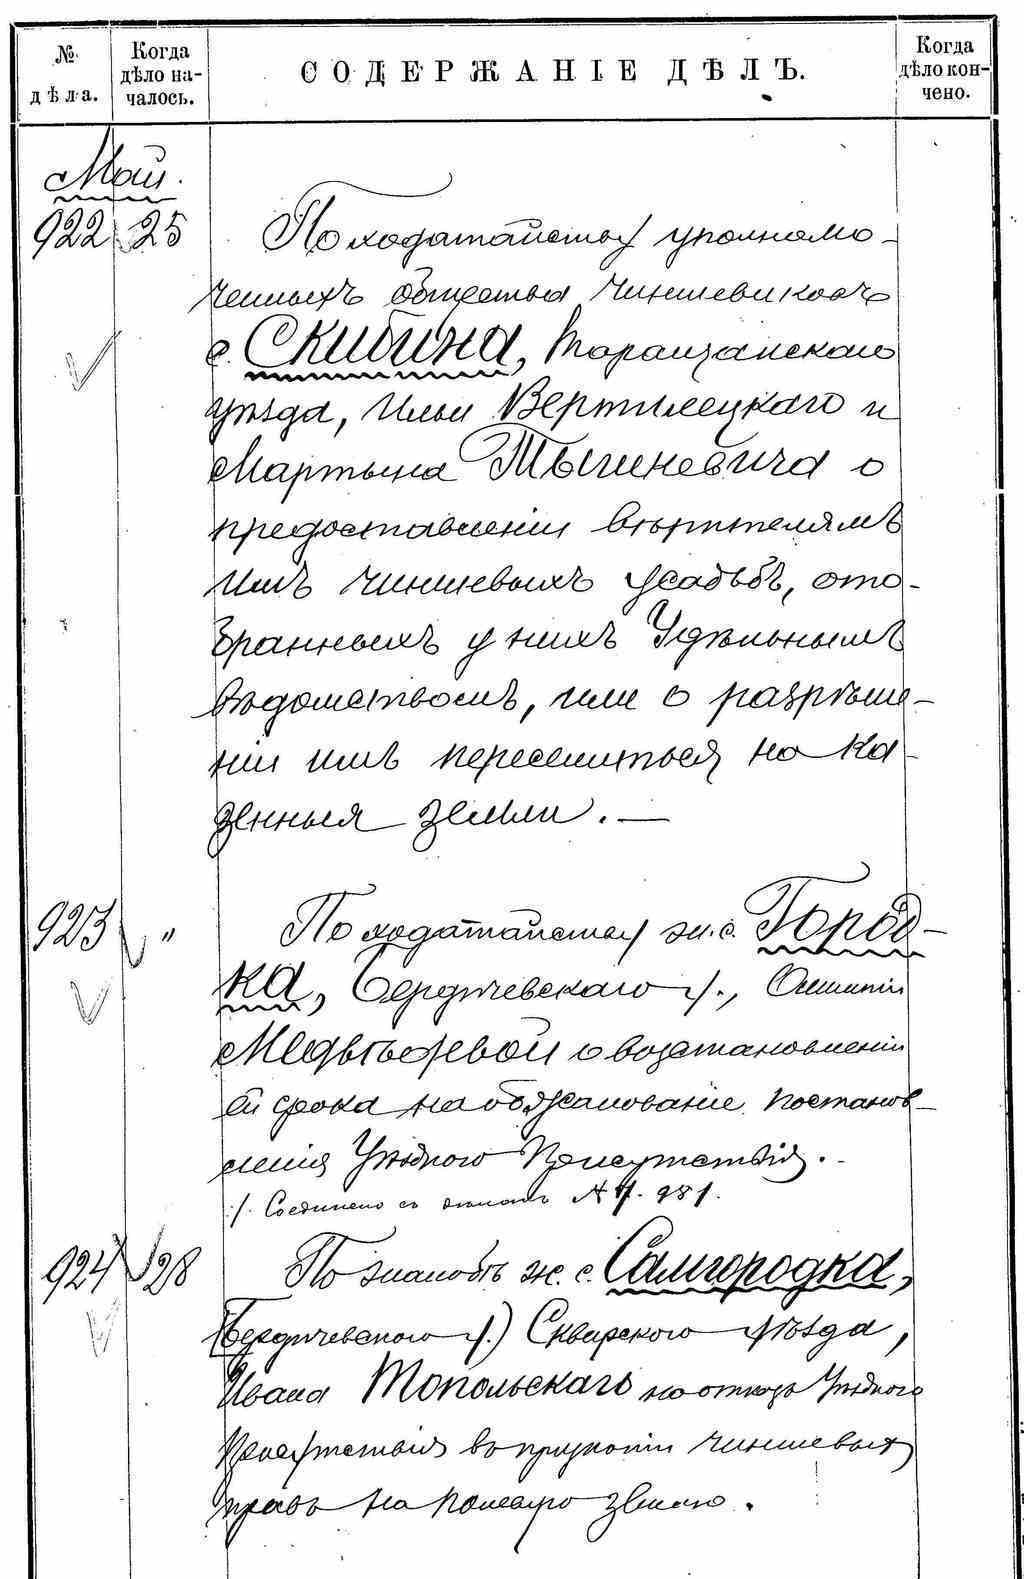 № дѣла.
Когда дѣло на-
чалось.
СОДЕРЖАНІЕ ДѢЛЪ.
Когда дѣло кон-
чено.
Май.
922 25 По ходатайству уполномо-
ченныхъ общества чиншевиковъ
с. Скибина, Таращанскаго
уѣзда, Ильи Вертилецкаго и
Мартына Тышкевича о
предоставленіи вѣрителямъ
ихъ чиншевыхъ усадьбъ, ото-
бранныхъ у нихъ Удѣльнымъ
вѣдомствомъ, или о разрѣше-
ніи имъ переселиться на ка-
зенныя земли. —
923 " По ходатайству ж. с. Город-
ка, Бердичевскаго у.,
Медвѣдевой о возстановленіи
ей срока на обжалованіе постанов-
ленія Уѣзднаго Присутствія.
Соединено съ дѣломъ № 981.
924 28 По жалобѣ ж. с. Самгородка,
(Бердичевскаго у.) Сквирскаго уѣзда,
Ивана Топольскаго на отказъ Уѣзднаго
Присутствія въ признаніи чиншевыхъ
правъ на полевую землю.